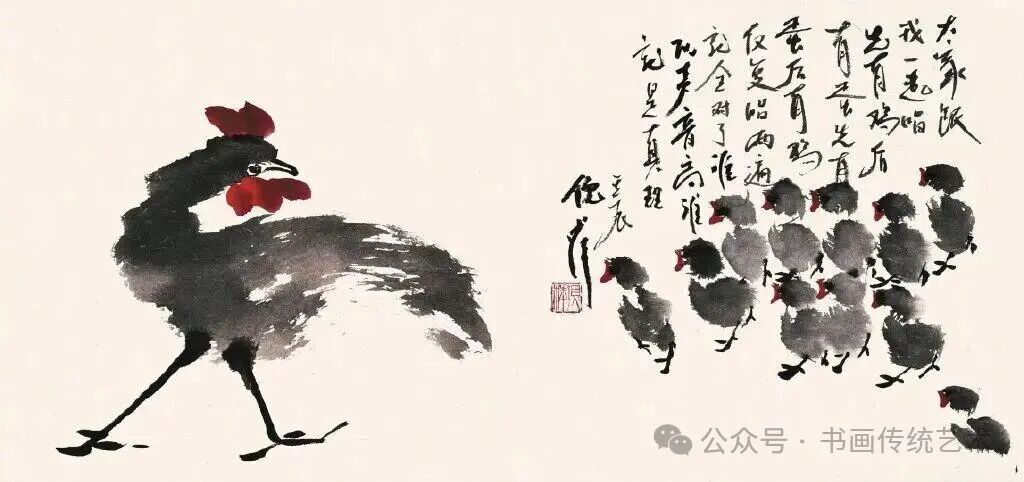 大家跟
我一起唱
先有鸡后
有蛋先有
蛋后有鸡
反复唱两遍
就全对了谁
的声音高谁
就是真理
壬辰
公众号 · 书画传统艺术